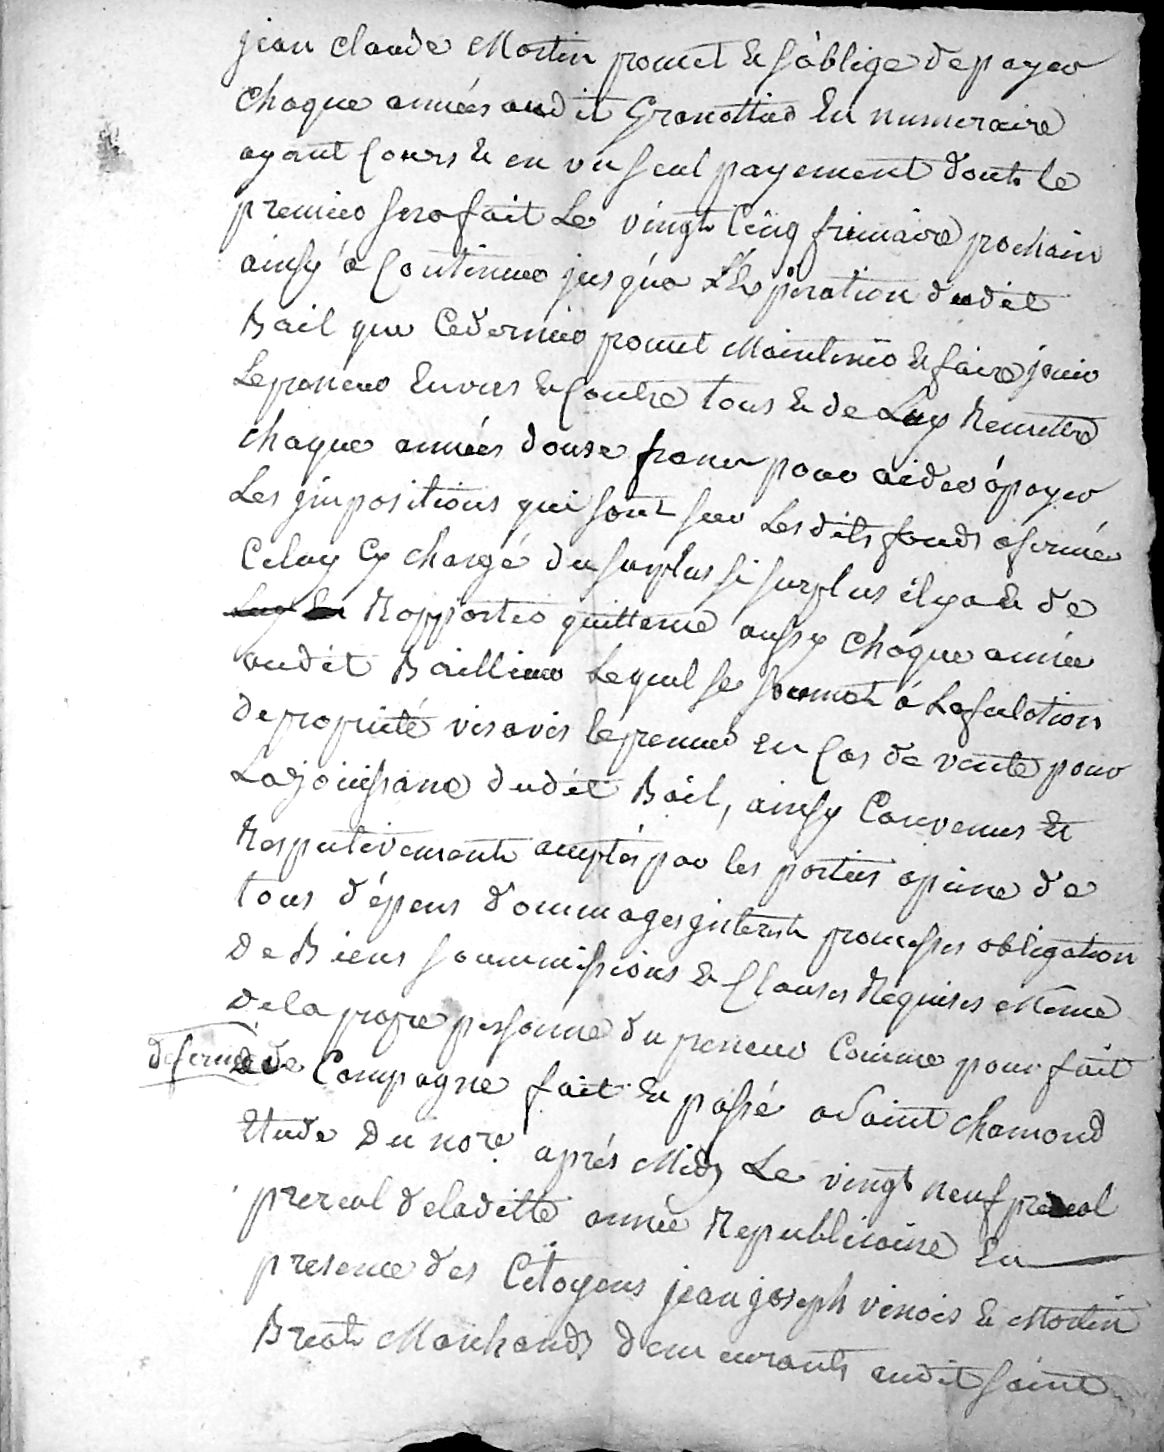 jean claude Martin promet & s'oblige de payer
chaque années audit Granottier En numeraire
ayant Cours & en un seul payement dont le
premier sera fait Le vingt Cinq frimaire prochain
ainsy à Continuer jusqu'a L'Expiration dudit
Bail que Cedernier promet Maintenir & faire jouir
Lepreneur Envers & Contre tous & de Luy Remettre
chaque années douze francs pour aider à payer
Les jmpositions qui sont sur Lesdits fonds afermé
Celuy Cy chargé du surplus si surplus il y a & de
Rapporter quittance aussy chaque année
audit Bailleur Lequel se soumet à
de propriété visavis lepreneur En Cas de vente pour
Lajouissance dudit Bail, ainsy Convenus Et
Respectivement acceptés par les parties apeine de
tous dépens dommages jnterets promesses obligation
de Biens soummissions & Clauses Requises Même
de la propre personne du preneur Comme pour fait
deferme de Campagne fait Eu passé a Saint chamond
Etude du nore. après Midy Le vingt neuf
prereal de ladite année Republicaine En
presence des Citoyens jean joseph vinois & Martin
Marchands demeurants audit saint